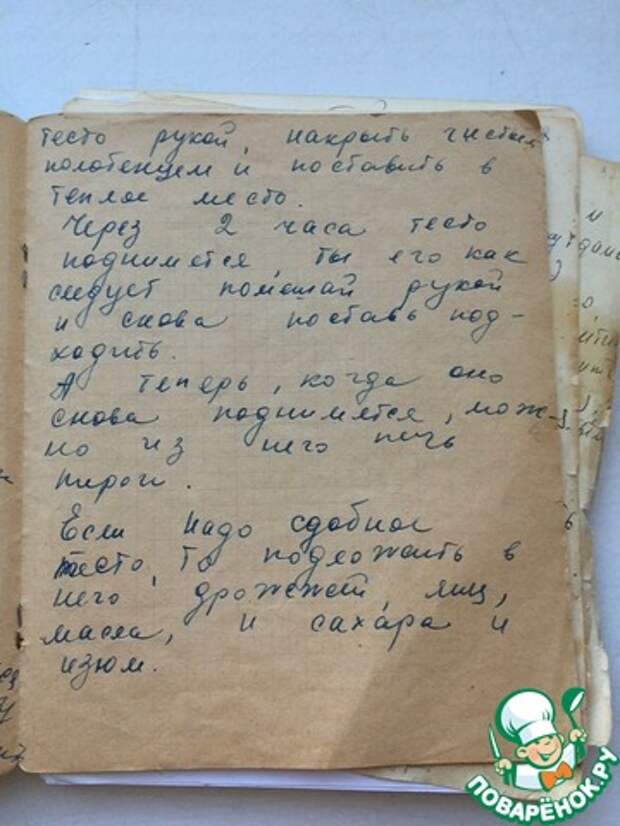 тесто рукой, накрыть чистым
полотенцем и поставить в
теплое место.
Через 2 часа тесто
поднимется ты его как
следует помешай рукой
и снова поставь под-
ходить.
А теперь, когда оно
снова поднимется, мож-
но из него печь
пироги.
Если надо сдобное
тесто, то подложить в
него дрожжей, яиц,
масла, и сахара и
изюм.
ПОВАРЁНОК.РУ